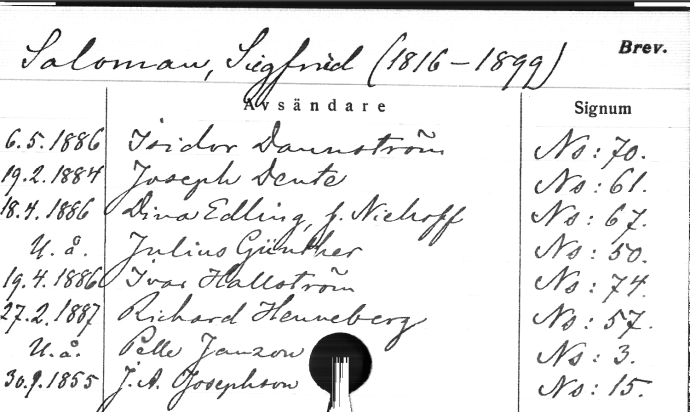 Saloman, Siegfried (1816-1899) Brev.
Avsändare Signum
6.5.1886 Isidor Dannström No: 70.
19.2.1884 Joseph Dente No: 61.
18.4.1886 Dina Edling, f. Niehoff No: 67.
U.å. Julius Günther No: 50.
19.4.1886 Ivar Hallström No: 74.
27.2.1887 Richard Henneberg No: 57.
U.å. Pelle Janzon No: 3.
30.9.1855 J.A. Josephson No: 15.